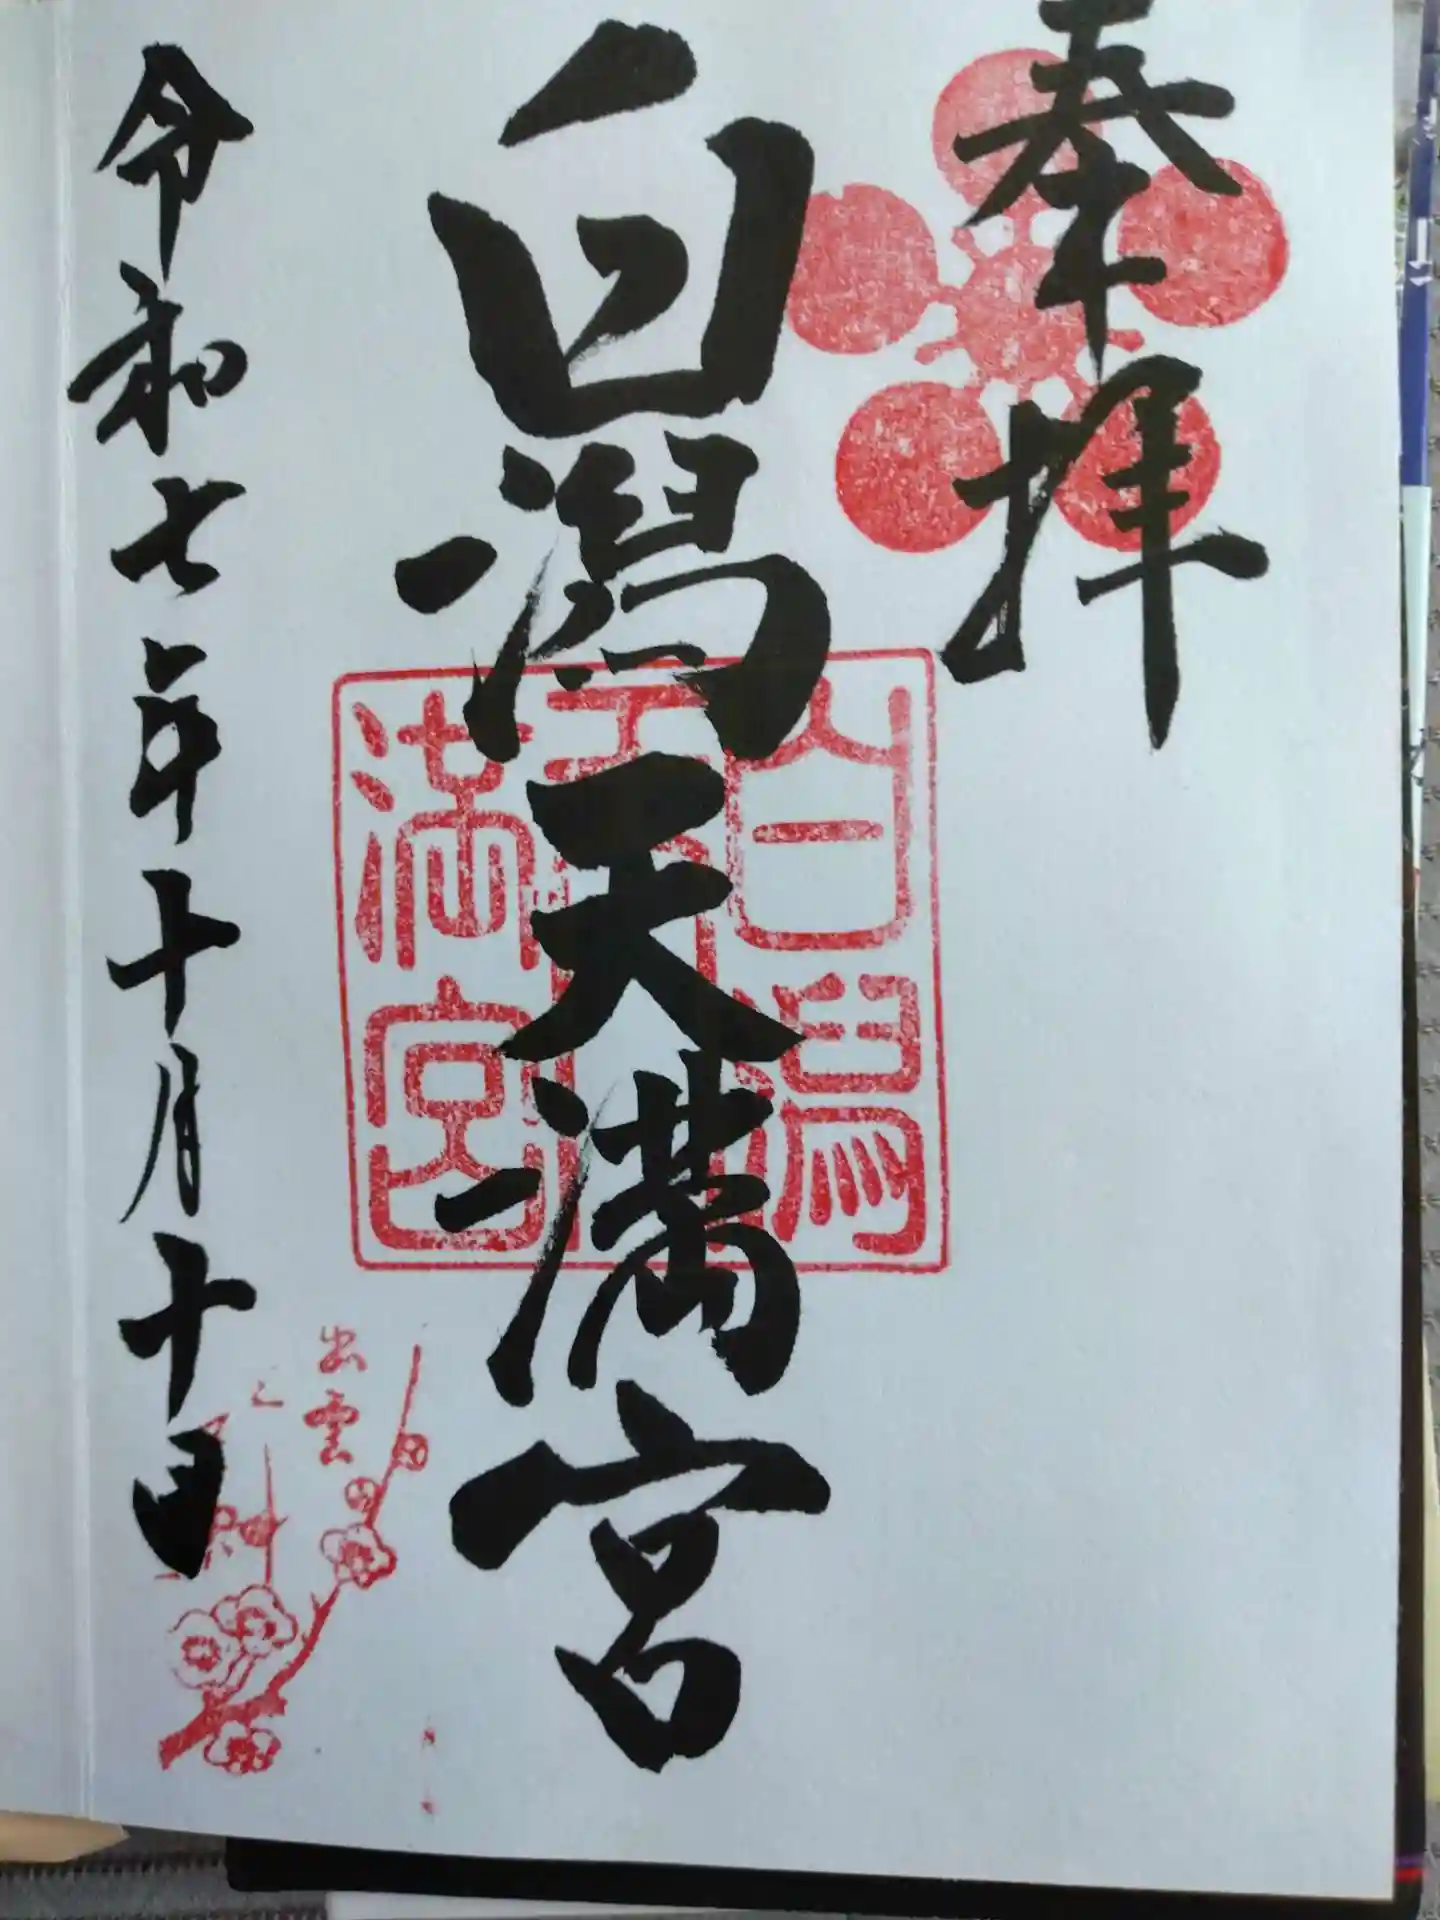 奉拝
白潟天満宮
白潟
天
満宮
令和七年十月十日
出雲